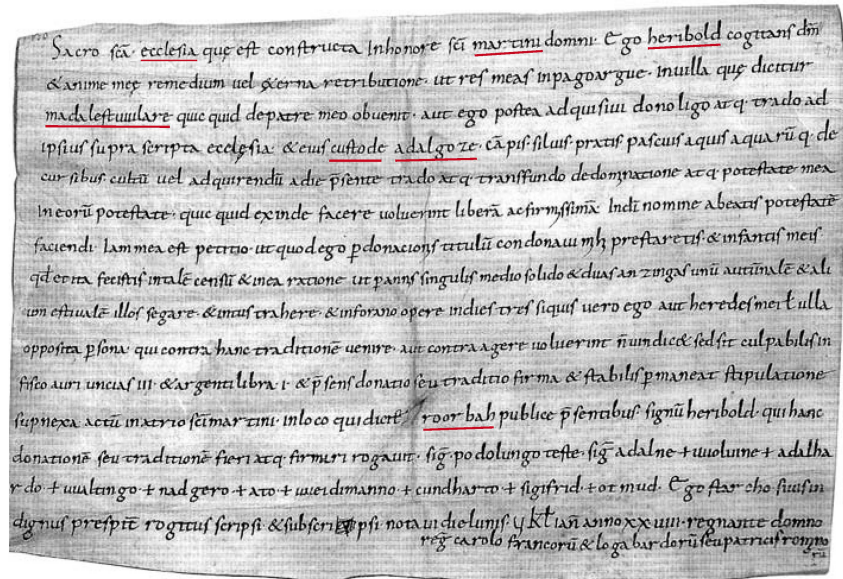 Sacro scā. ecclesia quę est constructa Inhonore scī martini domni. Ego heribold cogitans dm̄
& anime meę remedium uel &erna retributione. ut res meas inpagoargue. Inuilla quę dicitur
madalestuuilare quic quid depatre meo obuenit. aut ego postea adquisiui dono ligo atq. trado ad
ipsius supra scripta ecclęsia. & eius custode adalgoze. cāpis. siluis pratis pascuis aquis aquarū q. de
cursibus. cultū uel adquirendū adie p̄sente trado atq. transfundo dedomnatione atq. potestate mea
Ineorū potestate. quic quid exinde facere uoluerint liberā ac firmissimā. Indi nomine abeatis potestatē
faciendi. Iam mea est petitio. ut quod ego p donacionis titulū condonaui mh prestaretis. & infantis meis
qđ & ita fecistis intalē censū & inea ratione ut p annis singulis medio solido & duas anzingas unū autūnalē & ali
um estiualē illos segare. & intus trahere. & inforano opere indies tres siquis uero ego aut heredes mei ł ulla
opposita p sona. qui contra hanc traditionē uenire. aut contra agere uoluerint n̄ uindic& sed sit culpabilis in
fisco auri uncias III. & argenti libra. I. & p̄sens donatio seu traditio firma & stabilis p maneat stipulatione
supnexa actū in atrio scī martini. inloco qui dicit̄ roorbah publice p̄sentibus. signū heribold. qui hanc
donationē seu traditionē fieri atq. firmiri rogauit. sig̅ podolungo teste. sig̅ adalne + uuoluine + adalha
rdo + uualtingo + nadgero + ato + uueidimanno + cundharto + sigifrid + otmud. Ego starcho siuis in
dignus prespit̄ rogitus scripsi & subscri psi notaui die lunis. kł ian̄ anno xxuiiii. regnante domno
reg̅ carolo francorū & logabardorū seu patricis romno
rū